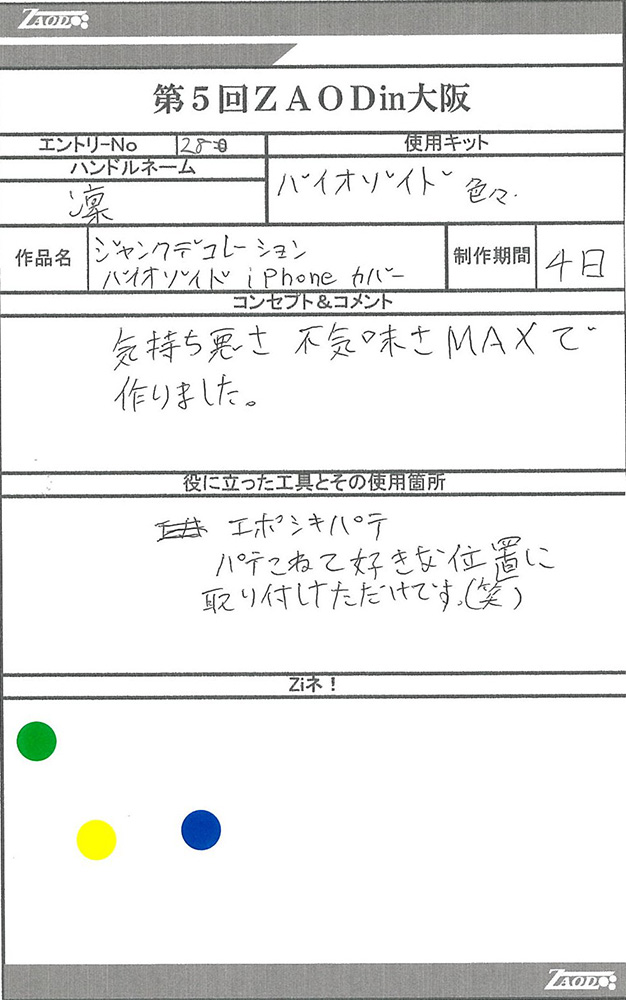 ZAOD
第5回ZAODin大阪
エントリ-No
28
使用キット
ハンドルネーム
凜
バイオゾイド 色々.
作品名
ジャンクデコレーション
バイオゾイド iPhone カバー
制作期間
4日
コンセプト&コメント
気持ち悪さ 不気味さMAXで
作りました。
役に立った工具とその使用箇所
エポシキパテ
パテこねて好きな位置に
取り付けただけです。(笑)
Ziネ!
ZAOD